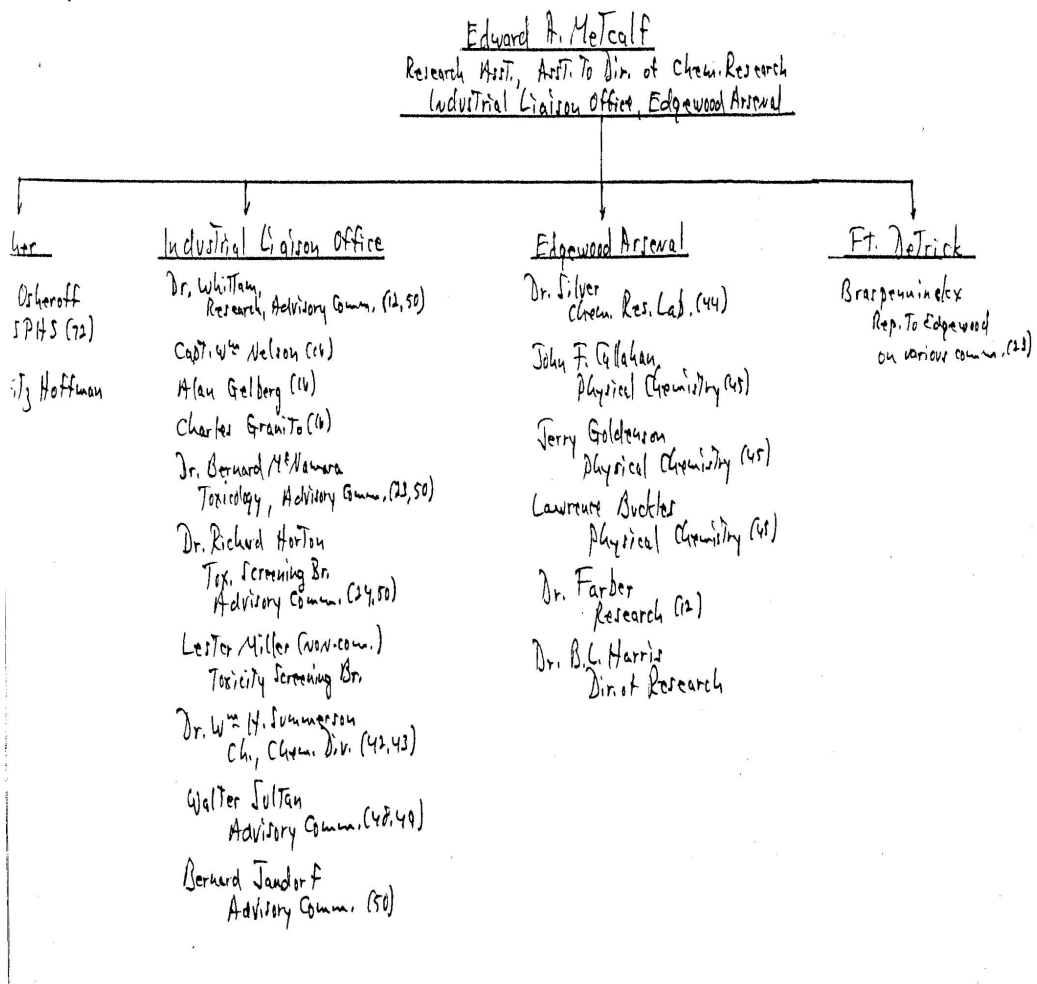 Edward A. Metcalf
Research Asst., Asst. To Dir. of Chem. Research
Industrial Liaison Office, Edgewood Arsenal
her
Osheroff
SPHS (72)
itz Hoffman
Industrial Liaison Office
Dr. Whittam,
Research, Advisory Comm. (12,50)
Capt. Wm Nelson (16)
Alan Gelberg (16)
Charles Granito (16)
Dr. Bernard McNamara
Toxicology, Advisory Comm. (23,50)
Dr. Richard Horton
Tox. Screening Br.
Advisory Comm. (24,50)
Lester Miller (non-com.)
Toxicity Screening Br.
Dr. Wm H. Summerson
Ch., Chem. Div. (42,43)
Walter Sultan
Advisory Comm. (48,49)
Bernard Jandorf
Advisory Comm. (50)
Edgewood Arsenal
Dr. Silver
Chem. Res. Lab. (44)
John F. Callahan,
Physical Chemistry (45)
Jerry Goldenson
Physical Chemistry (45)
Lawrence Buckles
Physical Chemistry (45)
Dr. Farber
Research (12)
Dr. B.L. Harris
Dir. of Research
Ft. Detrick
Rep. To Edgewood
on various comm. (23)